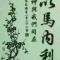 以馬內利
神與我們同在